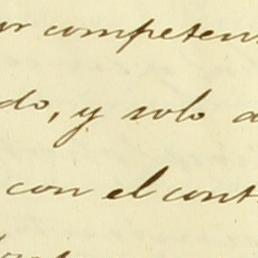 ur competen
do, y solo a
con el cont